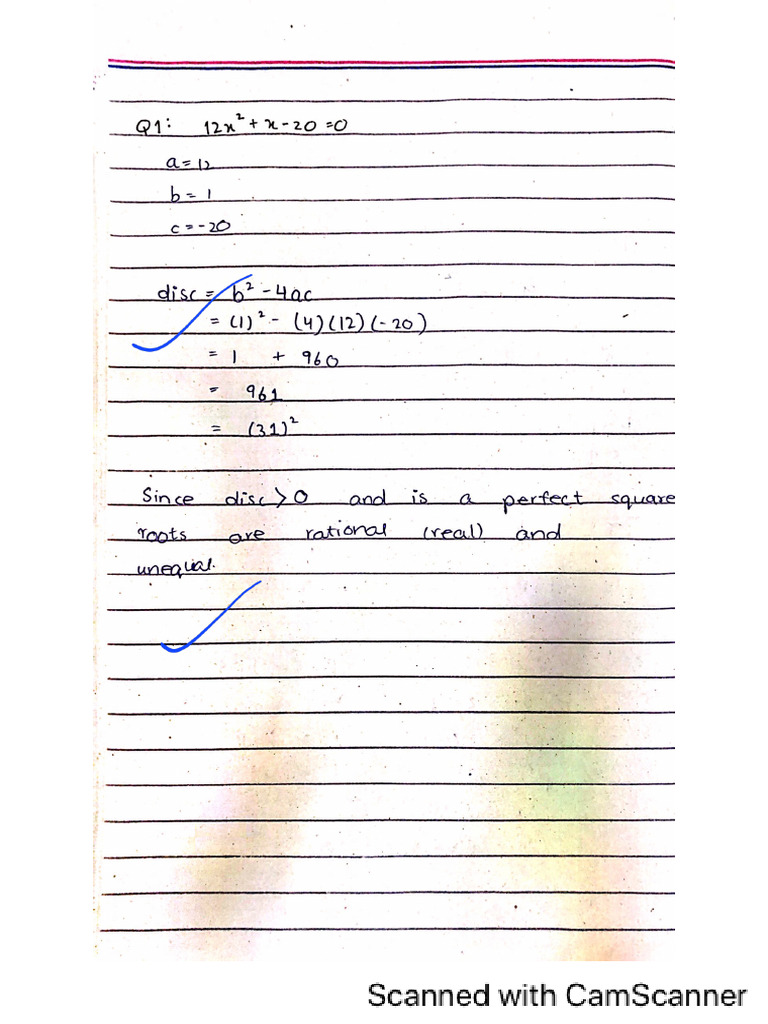 Q1: 12x² + x - 20 = 0
a = 12
b = 1
c = -20
disc = b² - 4ac
= (1)² - (4)(12)(-20)
= 1 + 960
= 961
= (31)²
Since disc > 0 and is a perfect square
roots are rational (real) and
unequal.
Scanned with CamScanner